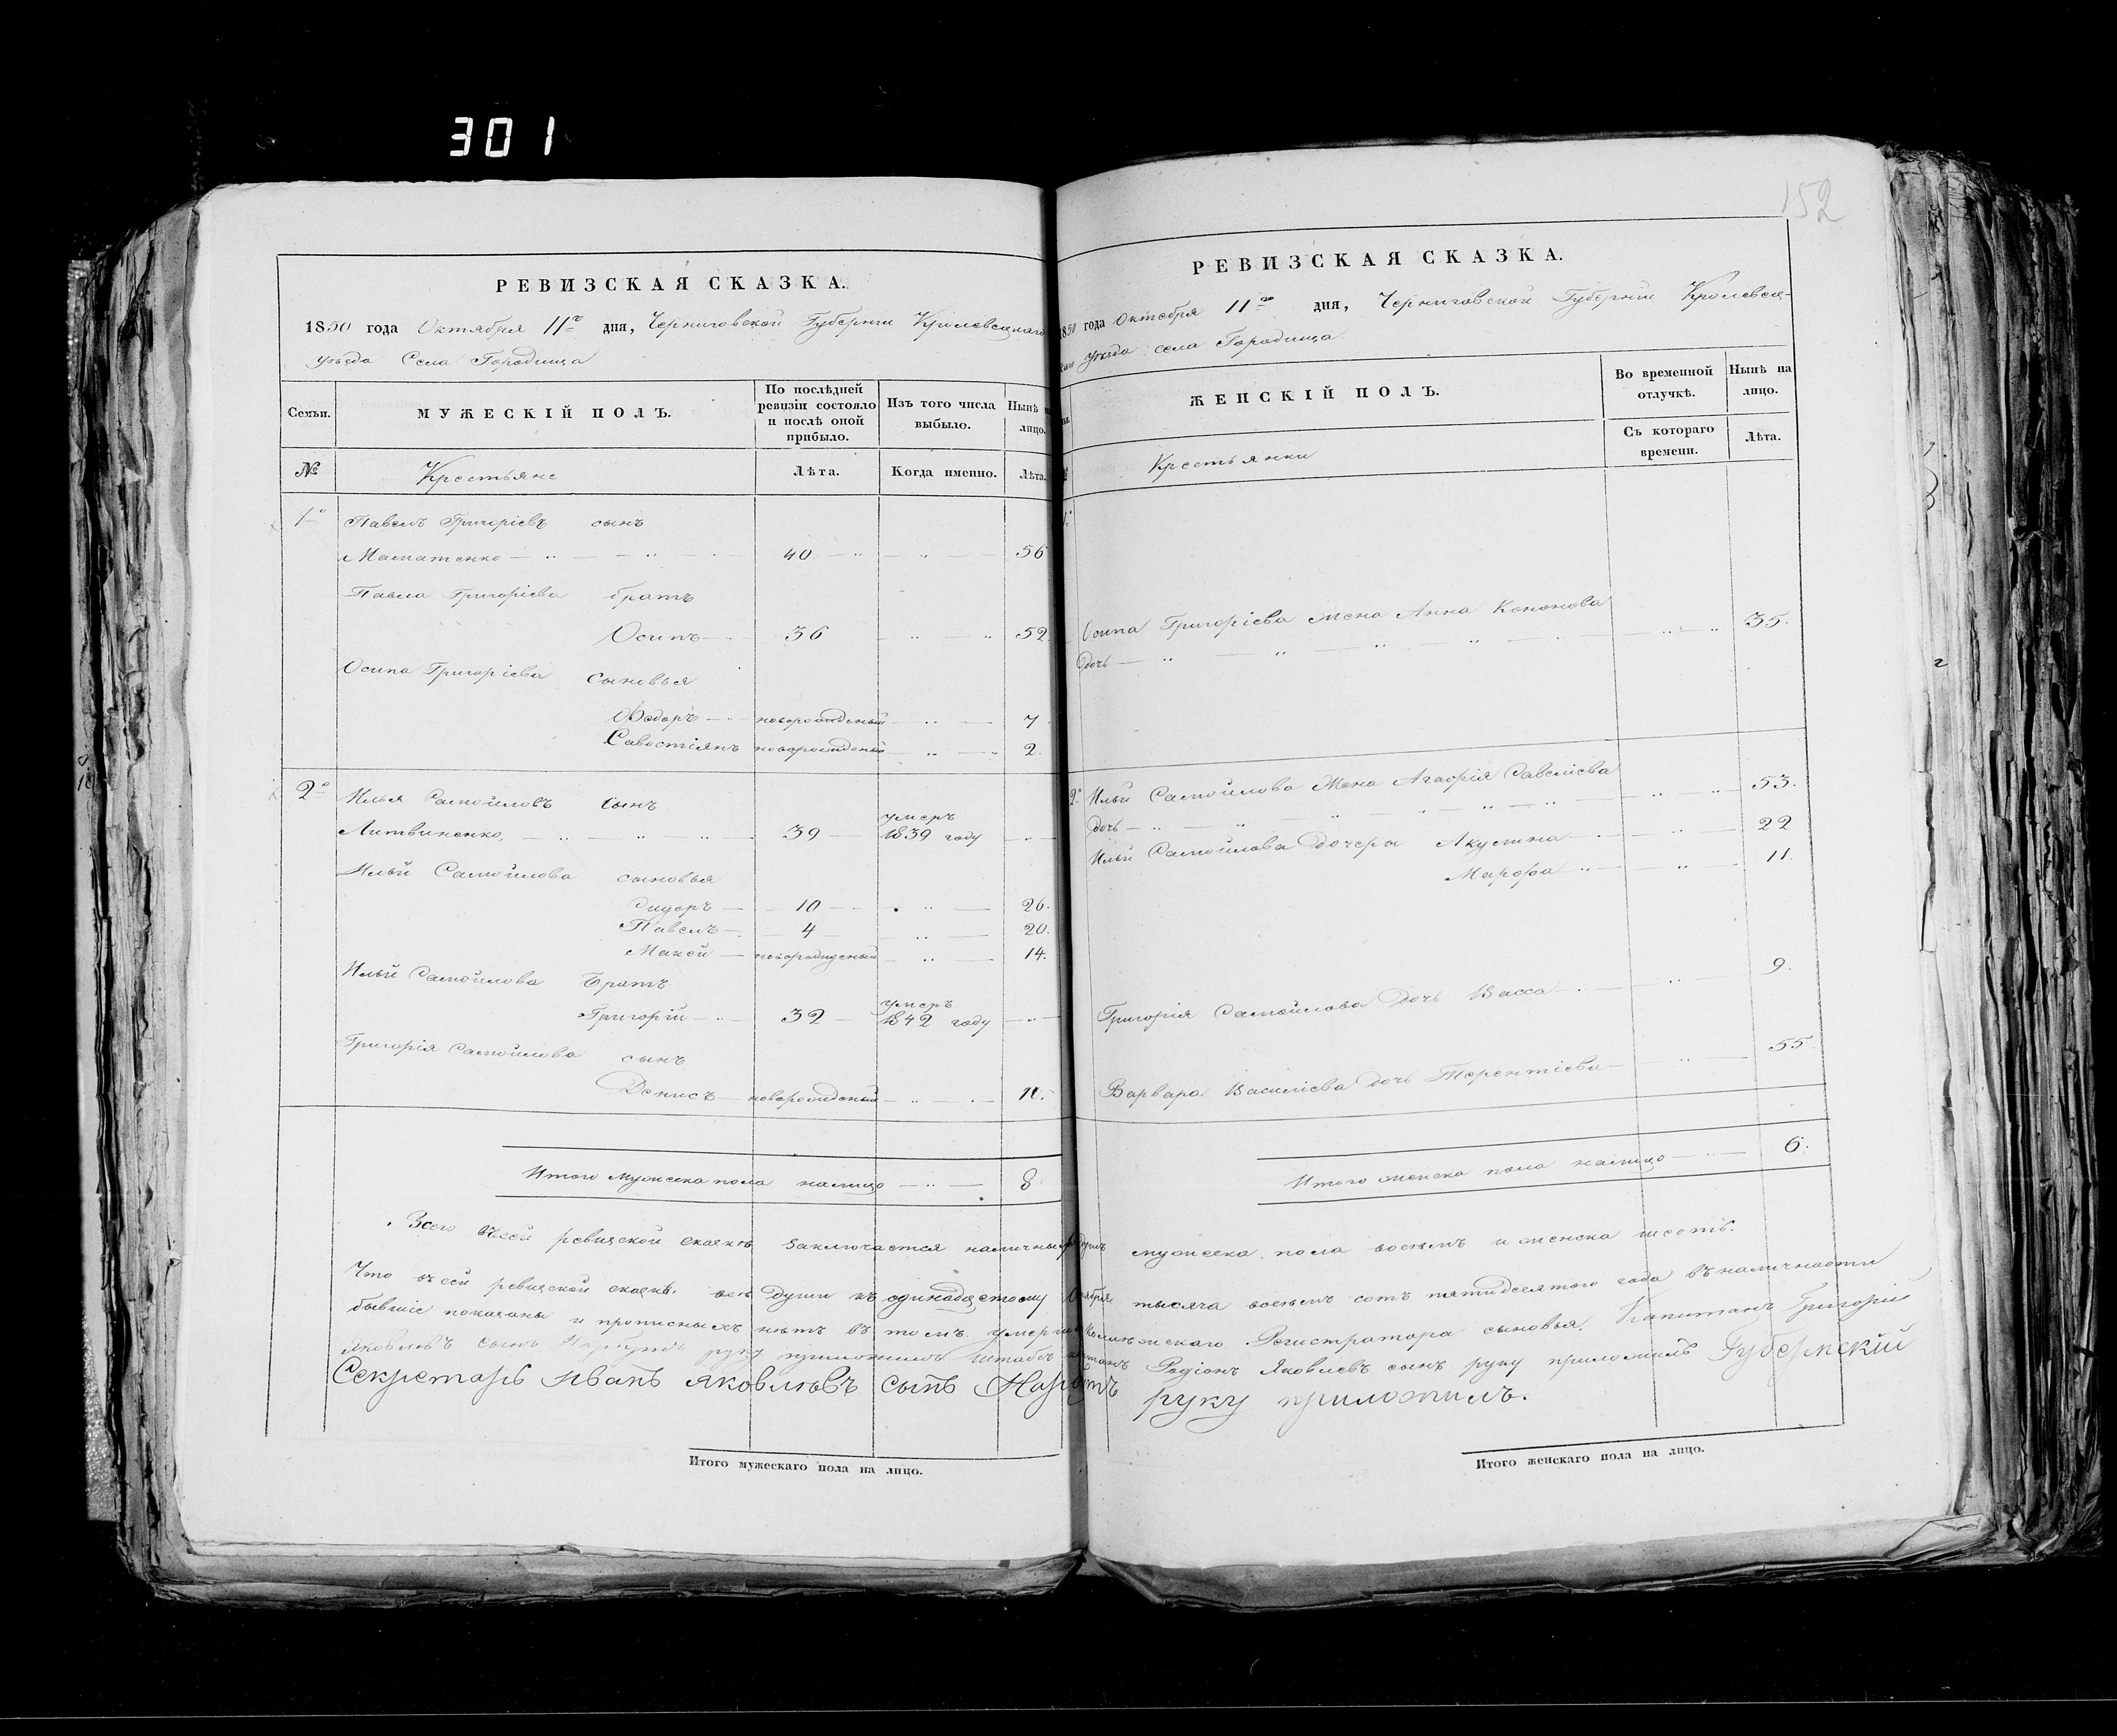 301
152
РЕВИЗСКАЯ СКАЗКА.
1850 года Октября 11го дня, Черниговской Губернии Кролевецкаго
уѣзда Села Городища
Семьи.
МУЖЕСКІЙ ПОЛЪ.
По послѣдней ревизіи состояло и послѣ оной прибыло.
Изъ того числа выбыло.
Нынѣ на лицо.
№ Крестьяне Лѣта. Когда именно. Лѣта.
1е Павелъ Григоріевъ сынъ
40 56
Павла Григоріева братъ
Осипъ 36 52
Осипа Григоріева сыновья
Ѳедоръ новорожденый 7
Савостіянъ новорожденый 2.
2е Илья Самойловъ сынъ
Литвиненко, 39 умеръ 1839 году
Ильи Самойлова сыновья
Сидоръ 10 26.
Павелъ 4 20.
Мокей новорожденый 14.
Ильи Самойлова Братъ
Григорій 32 умеръ 1842 году
Григорія Самойлова сынъ
Денисъ новорожденый 11.
Итого мужеска пола налицо 8
РЕВИЗСКАЯ СКАЗКА.
1850 года Октября 11го дня, Черниговской Губерніи Кролевец-
каго уѣзда села Городища
ЖЕНСКІЙ ПОЛЪ.
Во временной отлучкѣ.
Нынѣ на лицо.
Крестьянки
Съ котораго времени.
Лѣта.
1е
Осипа Григоріева жена Анна Кононова
дочь 35.
2е Ильи Самойлова жена Агафія Савеліева
дочь 53.
Ильи Самойлова дочери Акулина 22
Марфа 11.
Григорія Самойлова дочь Васса 9.
Варвара Василіева дочь Терентіева 55.
Итого женска пола налицо 6.
Всего въ сей ревизской сказкѣ заключается наличныхъ душъ мужеска пола восемъ и женска шесть.
Что въ сей ревизской сказкѣ все души къ одинадцатому Октября тысяча восемъ сотъ пятидесятого года въ наличности
бывшіе показаны и прописныхъ нѣтъ въ томъ умершаго Колежскаго Регистратора сыновья. Капитанъ Григорій
Яковлевъ сынъ руку приложилъ Штабсъ капитанъ Родіонъ Яковлевъ сынъ руку приложилъ Губернскій
Секретарь Иванъ Яковлѣвъ сынъ руку приложилъ.
Итого мужескаго пола на лицо.
Итого женскаго пола на лицо.